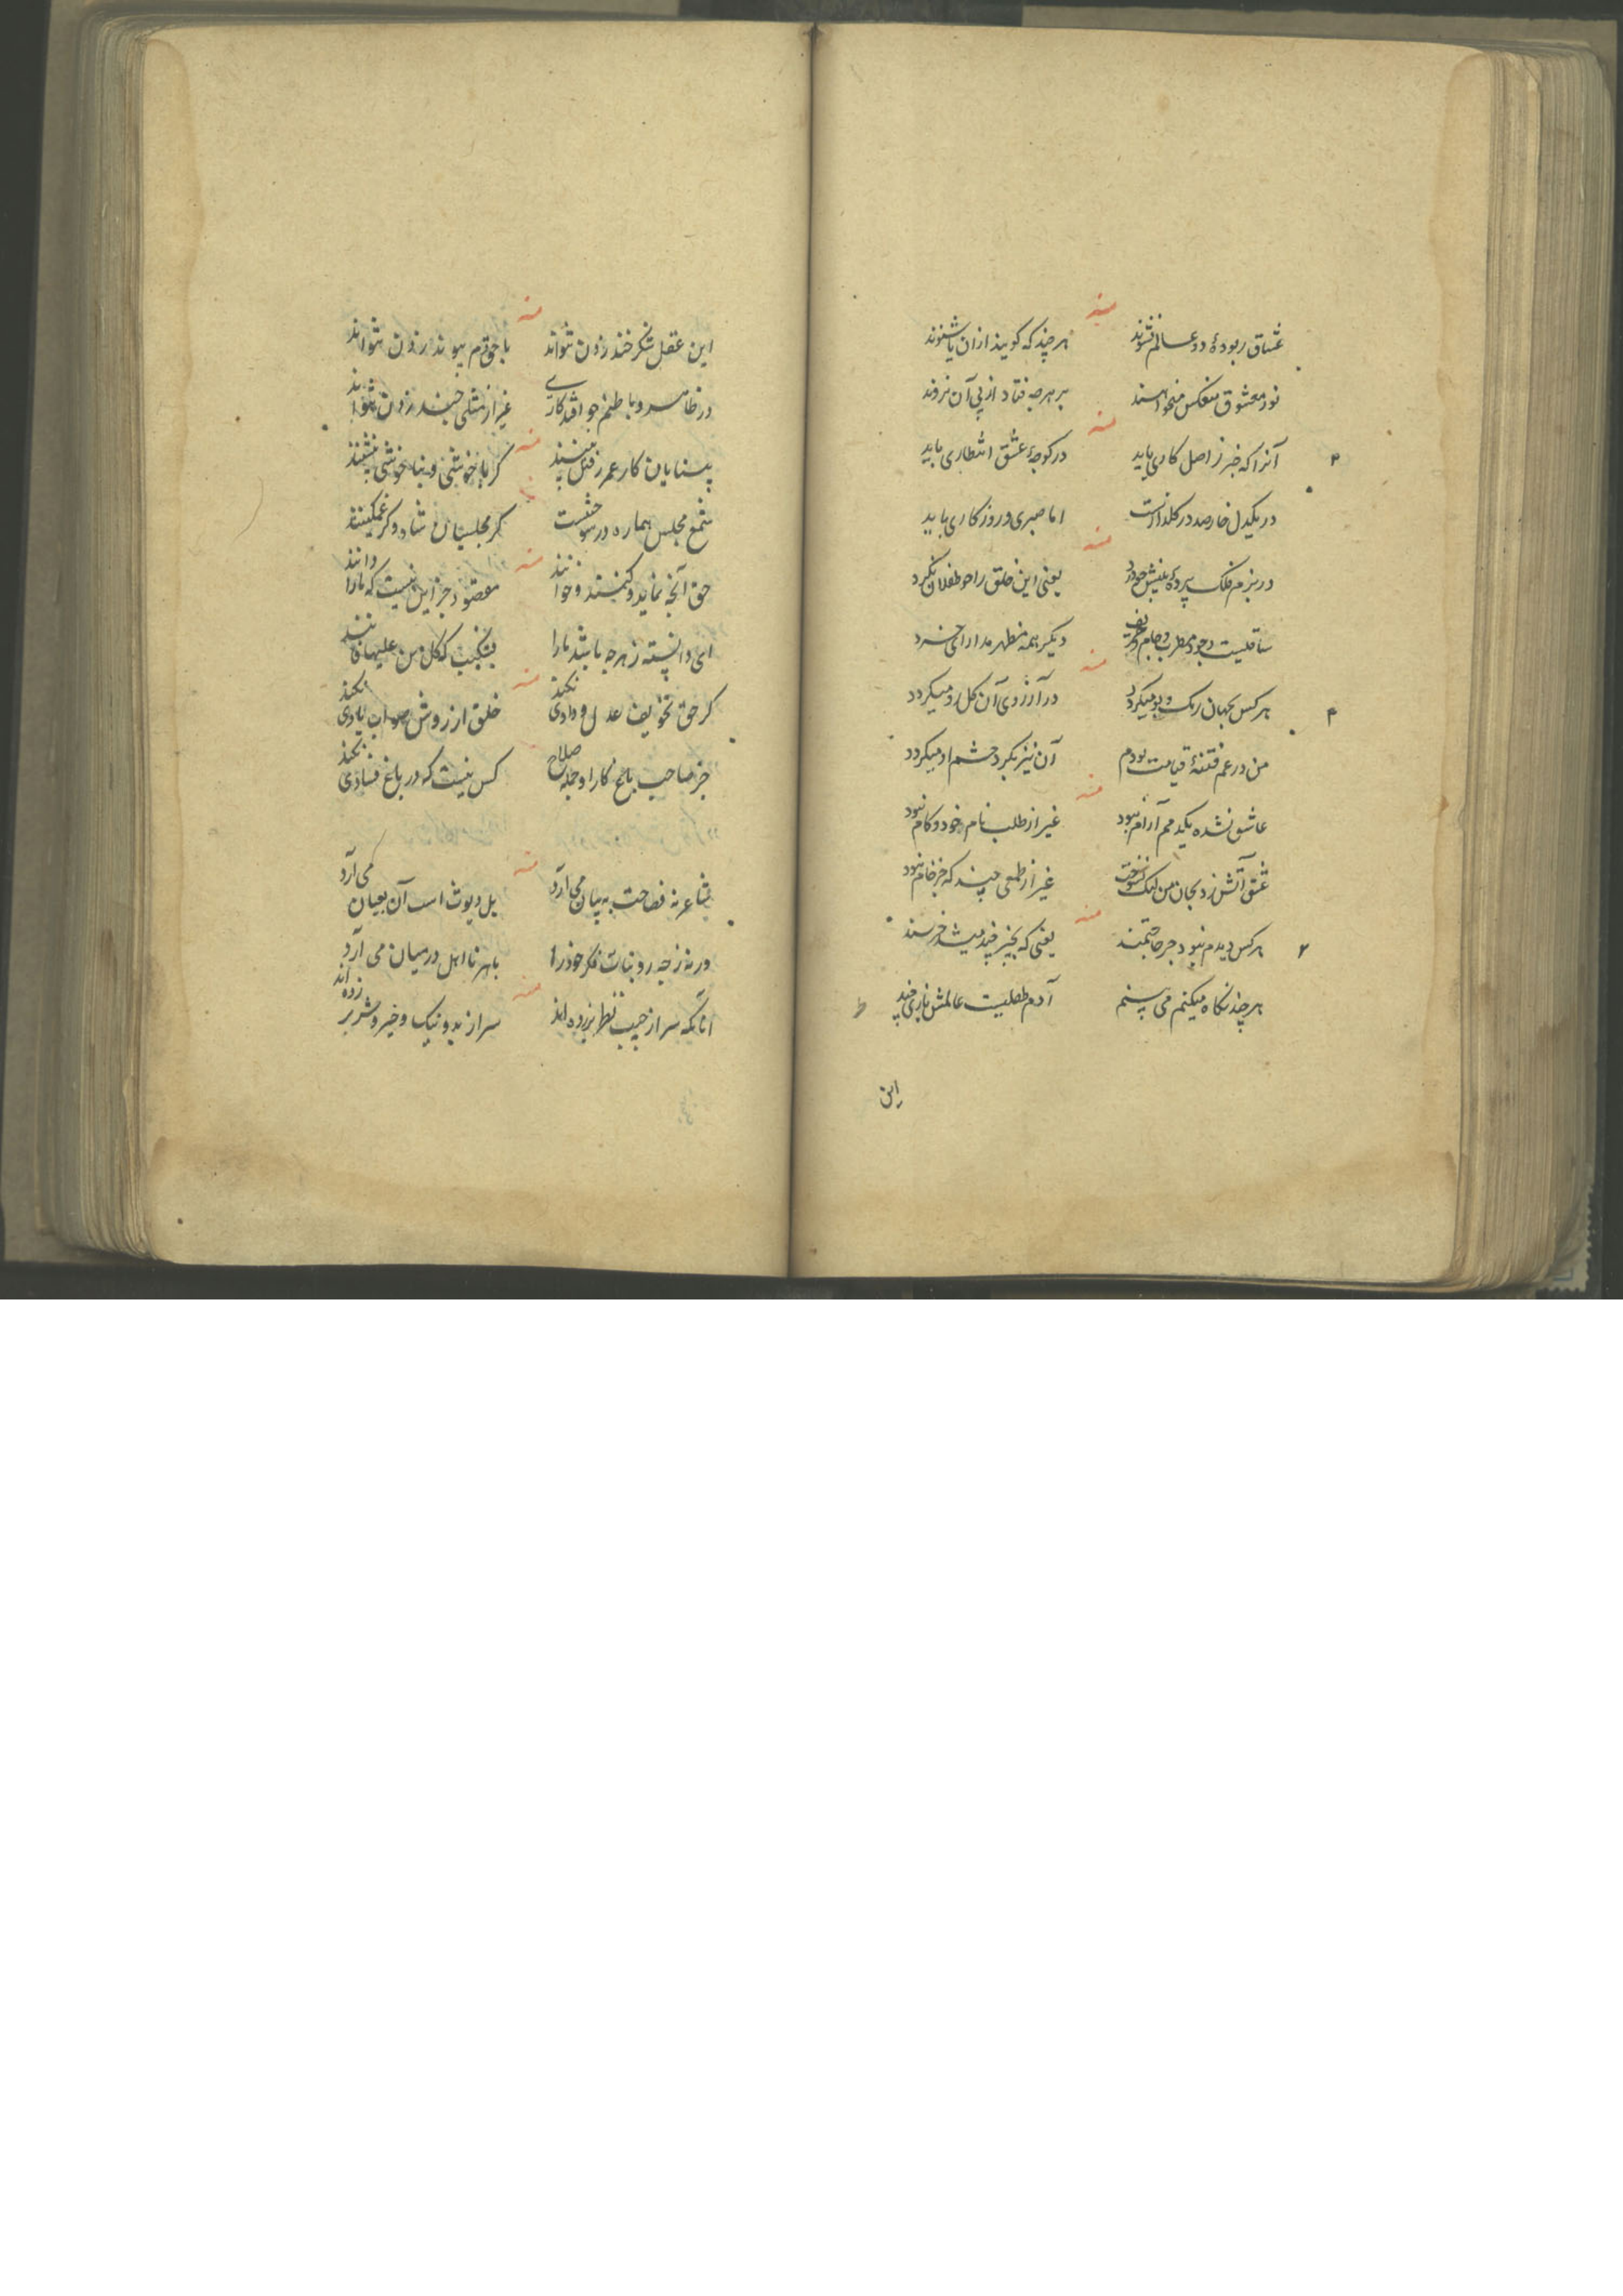 منه
عشاق ربودهٔ دو عالم نشوند هر چند که گویند ازان یا شنوند
نور معشوق منعکس بر هر چه فتاد از پی آن نروند
منه
آنرا که خبر ز اصل کاری باید در کوچهٔ عشق انتظاری باید
در یکدل خار صد در گلزارست اما صبری و روزگاری باید
منه
در بزم فلک پردهٔ بینش خود یعنی این خلق را چو طفلان نگرد
ساقیست وجود و مطرب و جام و حریف دیگر همه مظهر مدارای خرد
منه
هر کس بجهان رنگ و بو میگردد در آرزوی آن گل رو میگردد
من در غم فتنهٔ قیامت بودم آن نیز بگرد چشم او میگردد
منه
عاشق نشده یکدمم آرام نبود غیر از طلب نام خود و کام نبود
عشق آتش زد بجان من لیک نسوخت غیر از طمعی چند که جز خام نبود
منه
هر کس دیدم نبود جز حاجتمند یعنی که بچیز چند میشد خرسند
هر چند نگاه میکنم می بینم آدم طفلیست عالمش بازی چند
این
منه
این عقل شکر خند زدن نتواند با حق دم پیوند زدن نتواند
در ظاهر و باطنم جو افتد کاری غیر از مثلی چند زدن نتواند
منه
بینایان کار عمر رفتن بینند گر با خوشی و بناخوشی بنشینند
شمع مجلس هماره در سوختنست گر مجلسیان شاد و گر غمگینند
منه
حق آنچه نماید و کنند و خوانند مقصود جز این نیست که ما را دانند
ای دانسته ز هر چه باشد ما را بشکیب که کل من علیها فانند
منه
گر حق تخویف عدل و دادی نکند خلق از روش صواب یادی نکند
جز صاحب باغ کار او جمله صلاح کس نیست که در باغ فسادی نکند
منه
شاعر نه فصاحت به بیان می آرد بل دیوث است آن بعیان می آرد
ورنه ز چه رو بنات فکر خود را با هر نااهل در میان می آرد
منه
آنانکه سر از جیب نظر بر زده اند سر از بد و نیک و خیر و شر بر زده اند